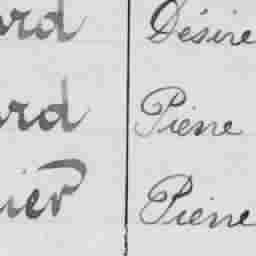 ard Désiré
ard Pierre
nier Pierre